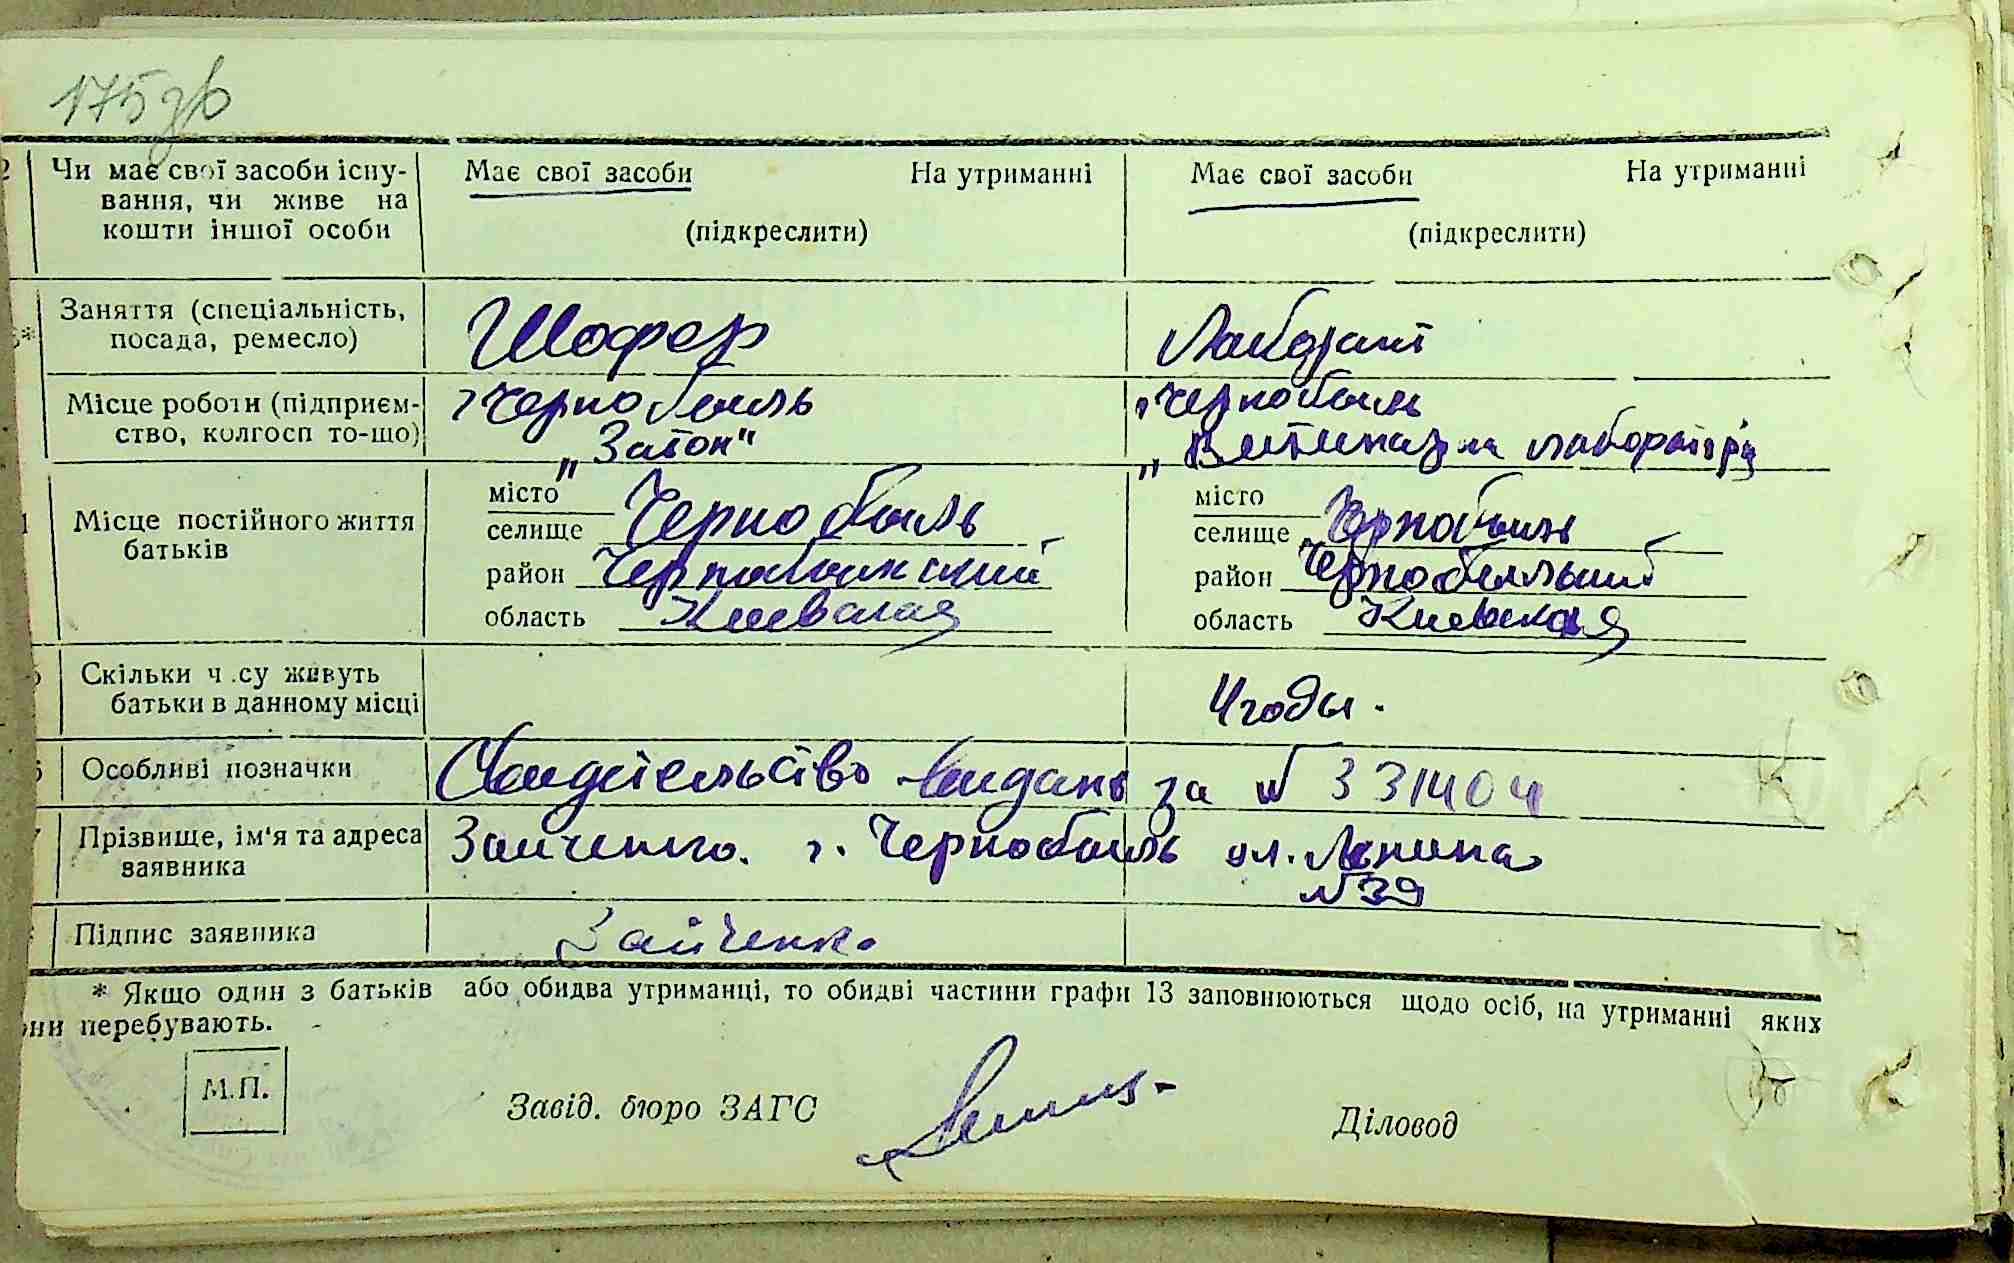 175 зв
2 Чи має свої засоби існу- Має свої засоби На утриманні Має свої засоби На утриманні
вання, чи живе на
кошти іншої особи (підкреслити) (підкреслити)
Заняття (спеціальність, Шофер Лаборант
* посада, ремесло)
Місце роботи (підприєм- г Чернобыль г Чернобыль
ство, колгосп то-що) „Затон" „ лаборатория
місто місто
Місце постійного життя селище Чернобыль селище Чернобыль
батьків район Чернобыльский район Чернобыльский
область Киевская область Киевская
Скільки ч.су живуть
батьки в данному місці 4 годы.
Особливі позначки Свидетельство выдано за № 331404
Прізвище, ім'я та адреса Зайченко. г. Чернобыль ул. Ленина
заявника №39
Підпис заявника Зайченко
* Якщо один з батьків або обидва утриманці, то обидві частини графи 13 заповнюються щодо осіб, на утриманні яких
они перебувають.
М.П. Завід. бюро ЗАГС Діловод